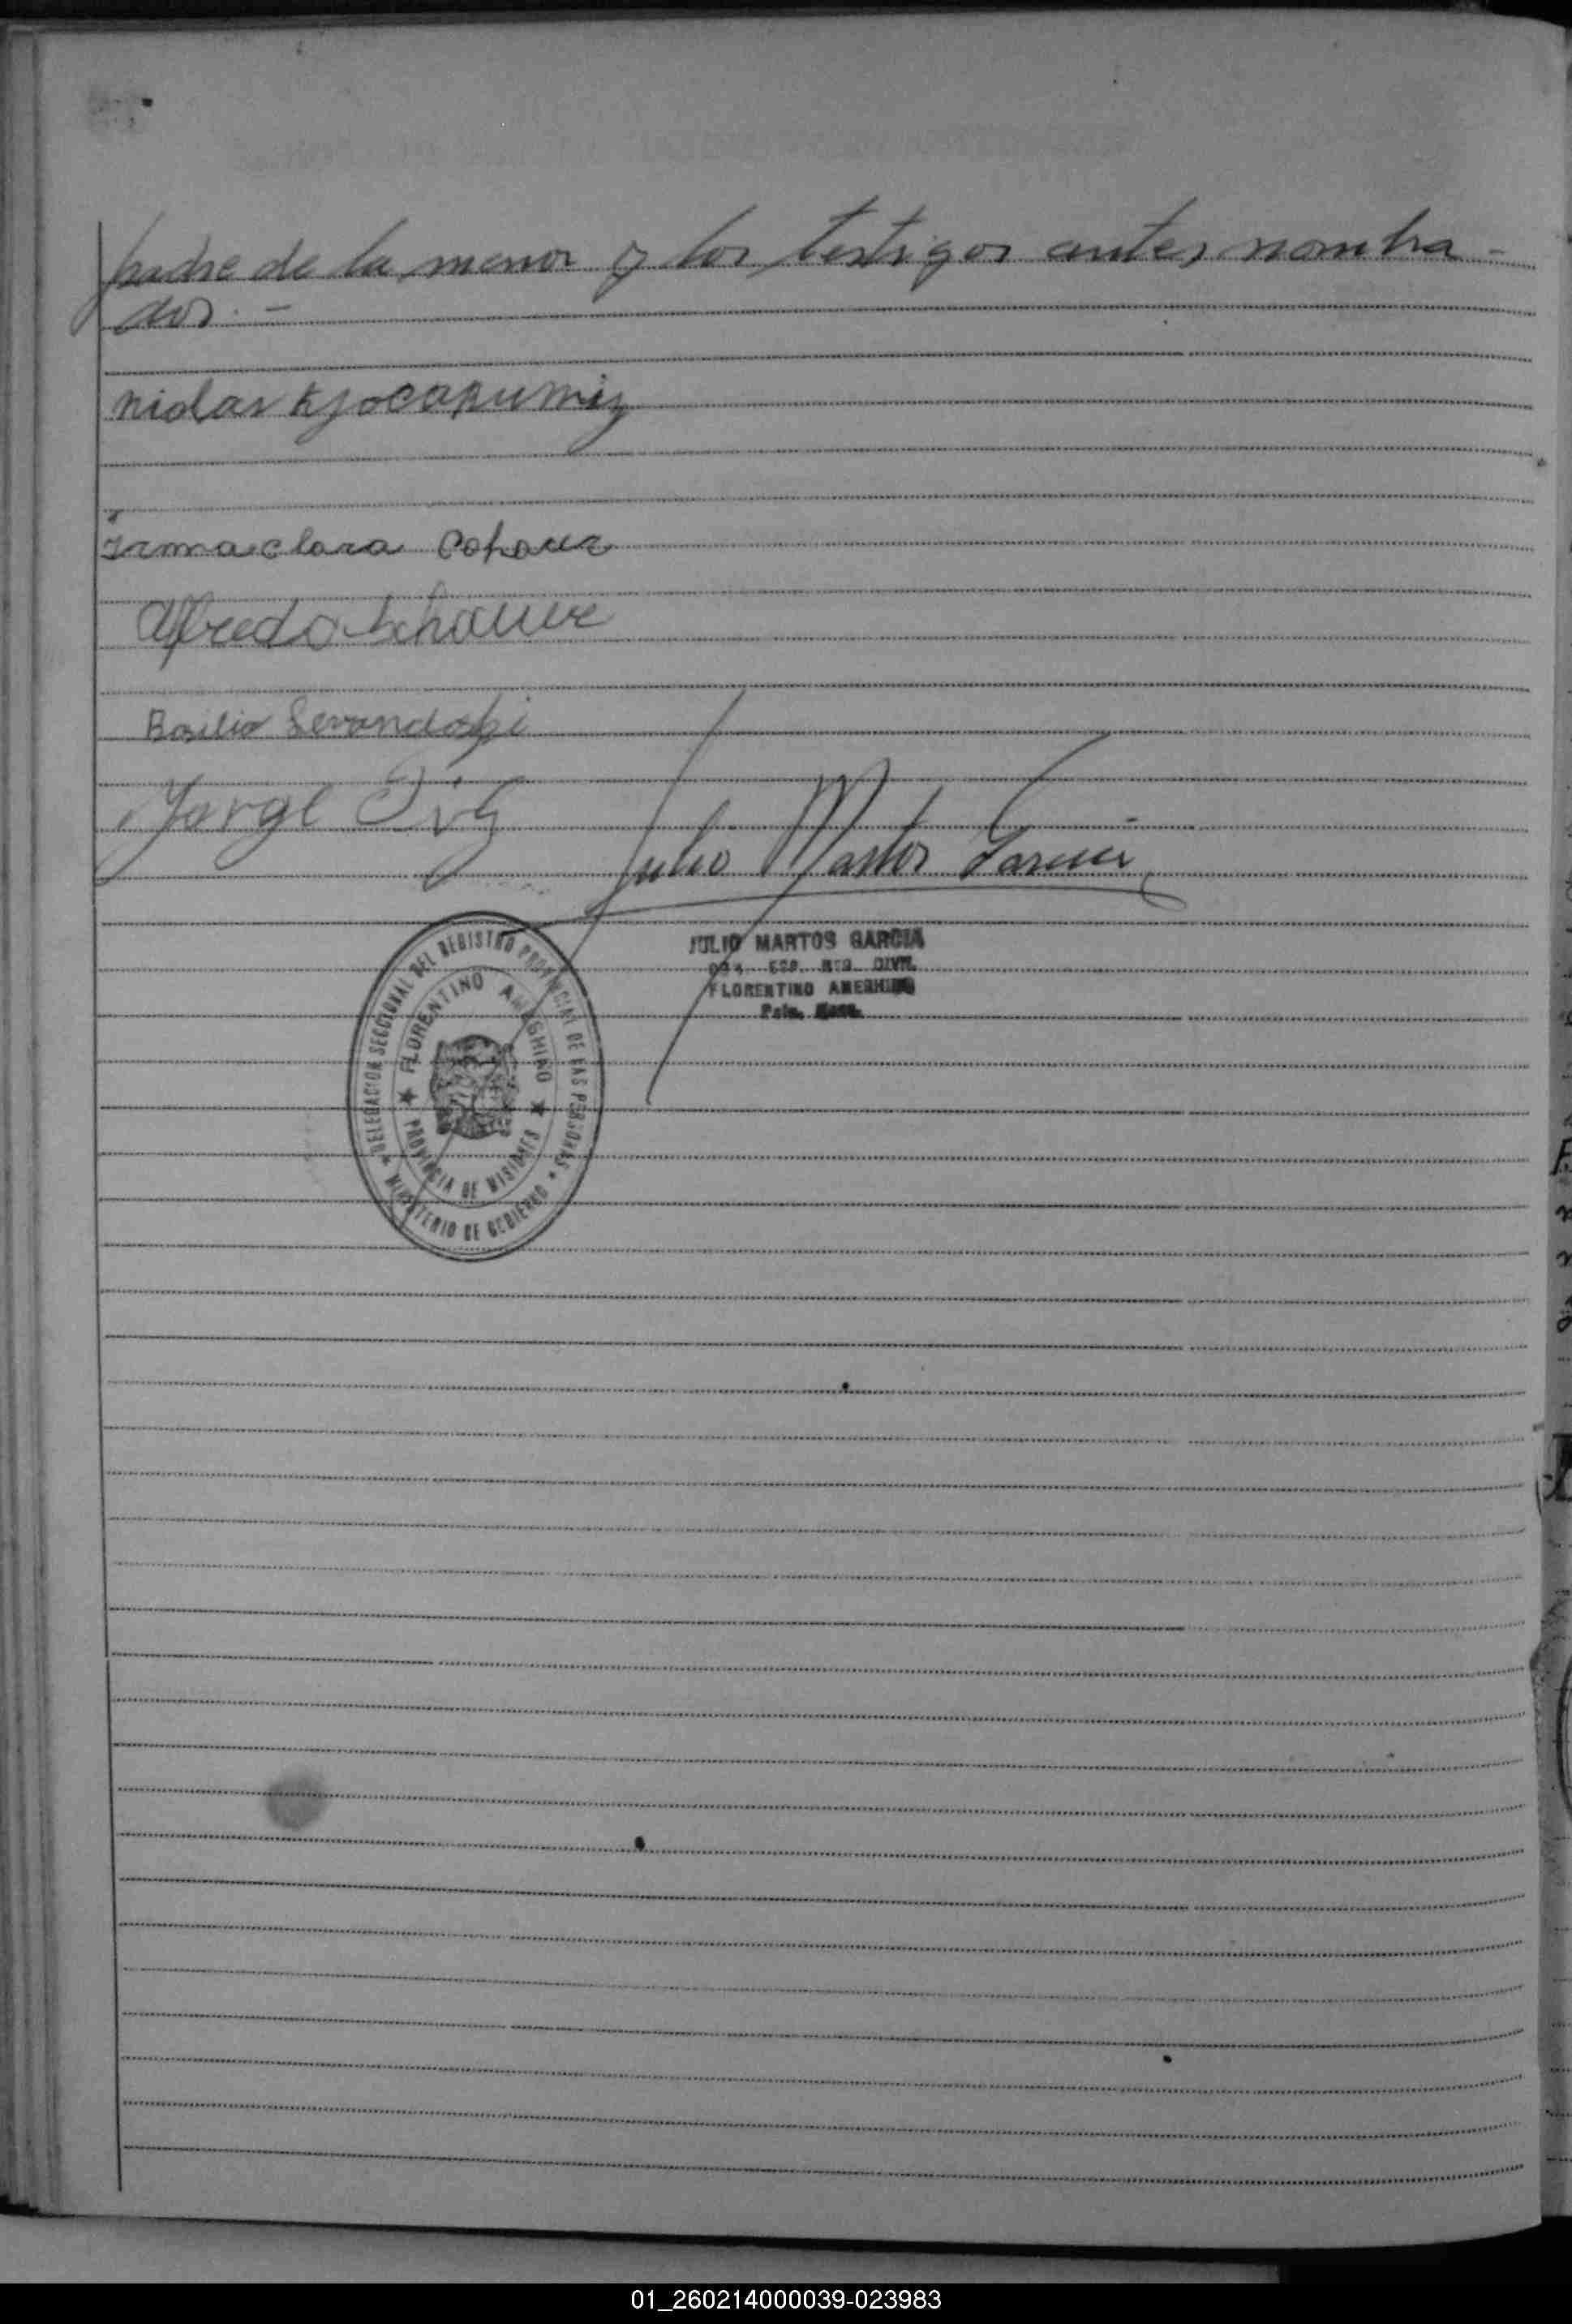 padre de la menor y los testigos antes nombra-
dos.-
Irma clara
Alfredo Schauer
Basilio
Jorge
Julio Martos Garcia
JULIO MARTOS GARCIA
REG. CIVIL
FLORENTINO AMEGHINO
DELEGACION SECCIONAL DEL REGISTRO PROVINCIAL DE LAS PERSONAS
MINISTERIO DE GOBIERNO
FLORENTINO AMEGHINO
PROVINCIA DE MISIONES
01_260214000039-023983